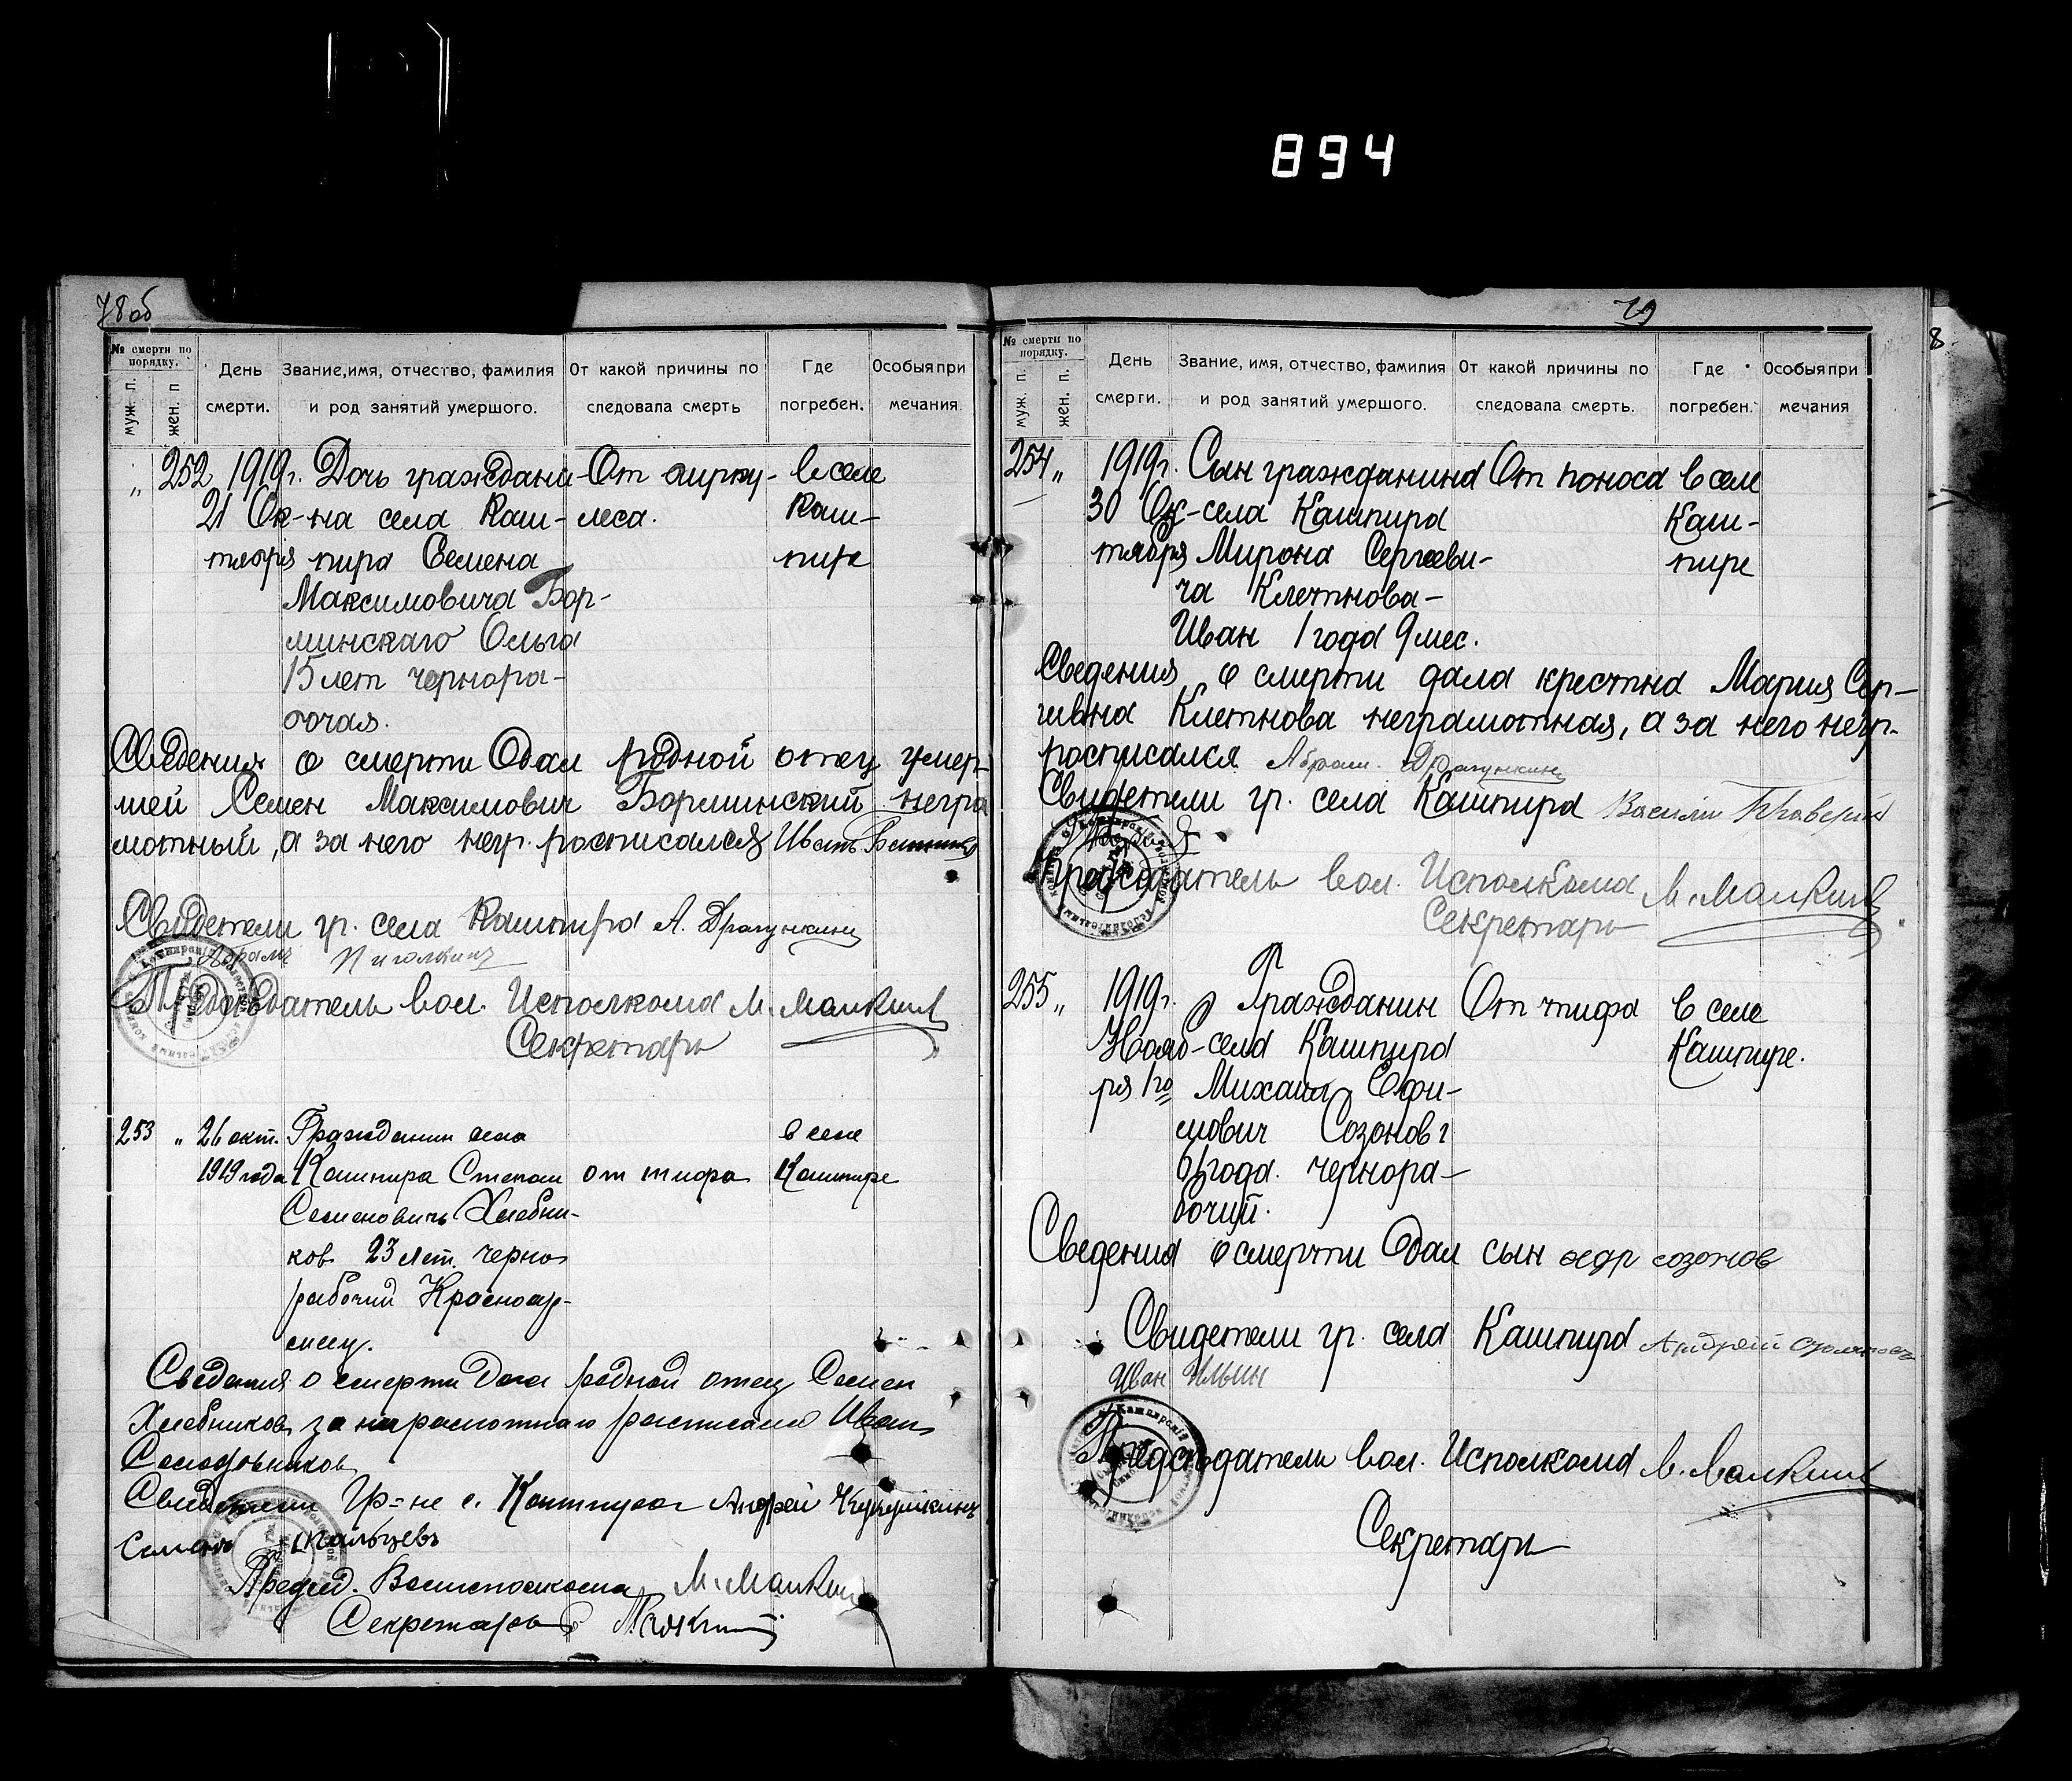 894
78об
№ смерти по порядку.
муж. п.
жен. п
День смерти.
Звание, имя, отчество, фамилия и род занятий умершого.
От какой причины по следовала смерть
Где погребен.
Особыя при мечания
„ 252 1919г. Дочь граждани- От в селе
21 Ок- на села Каш- леса. Каш-
тября пира Семена пире
Максимовича Бор-
минскаго Ольга
15 лет чернора-
бочая.
Сведения о смерти дал родной отец умер-
шей Семен Максимович Борминский негра
мотный, а за него негр. росписался Иван
Свидетели гр. села Кашпира А. Драгункин
Абрам Пиголкин
Председатель вол. Исполкома М. Малкин
Секретарь
253 „ 26 окт. Гражданин села в селе
1919 года Кашпира Степан от тифа Кашпире
Семеновичь Хлебни-
ков 23 лет. черно
рабочий Красноар-
меец.
Сведения о смерти дал родной отец Семен
Хлебников за неграмотнаго росписался Иван
Солодовников
Свидетели Гр=не с. Кашпира Андрей
Семен Мальцевъ
Председ. Волисполкома М. Малкин
Секретарь
79
№ смерти по порядку.
муж. п.
жен. п.
День смерти.
Звание, имя, отчество, фамилия и род занятий умершого.
От какой причины по следовала смерть.
Где погребен.
Особыя при мечания
254 „ 1919г. Сын гражданина От поноса в селе
30 Ок- села Кашпира Каш-
тября Мирона Сергееви- пире
ча Клетнова-
Иван 1 года 9 мес.
Сведения о смерти дала крестна Мария Сер-
гивна Клетнова неграмотная, а за него негр.
росписался Абрам. Драгункин
Свидетели гр. села Кашпира Василий
Председатель вол. Исполкома М. Малкин
Секретарь
255 „ 1919г. Гражданин От тифа в селе
Нояб- села Кашпира Кашпире.
ря 1го Михаил Ефи-
мович Созонов
61 года. чернора-
бочий.
Сведения о смерти дал сын созонов
Свидетели гр. села Кашпира Андрей
Иван Ильин
Председатель вол. Исполкома М. Малкин
Секретарь
8